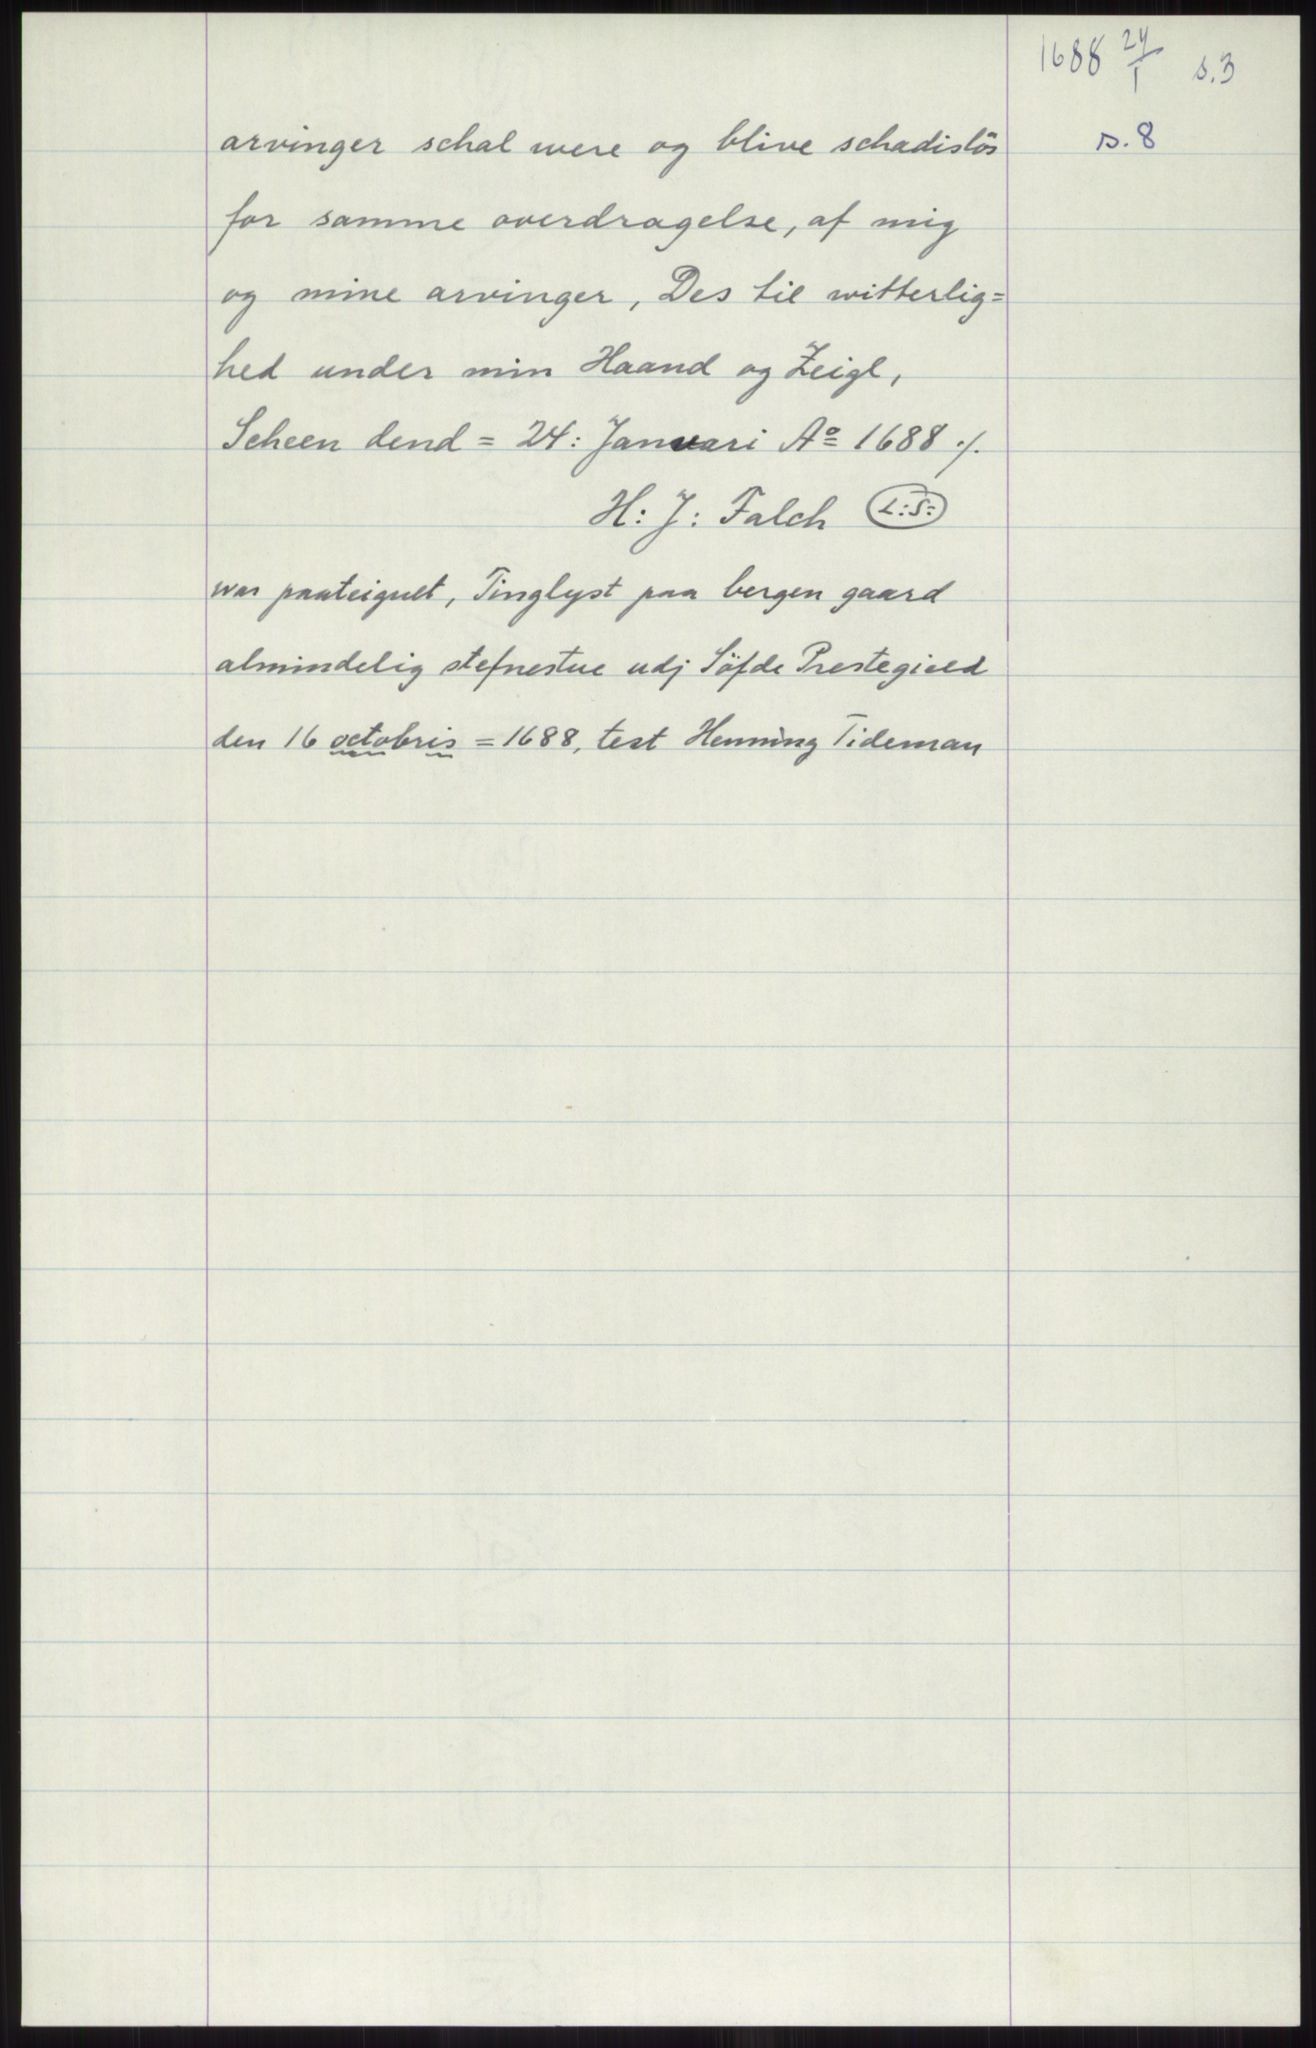 1688 24/1 s.3
arvinger schal were og blive schadislös s.8
for samme overdragelse, af mig
og mine arvinger, Des til witterlig=
hed under min Haand og Zeigl,
Scheen dend = 24: Januari Aº 1688 ./.
H: J: Falch L:S:
war paateignet, Tinglyst paa bergen gaard
almindelig stefnestue udj Söfde Prestegield
den 16 octobris = 1688, test Henning Tideman